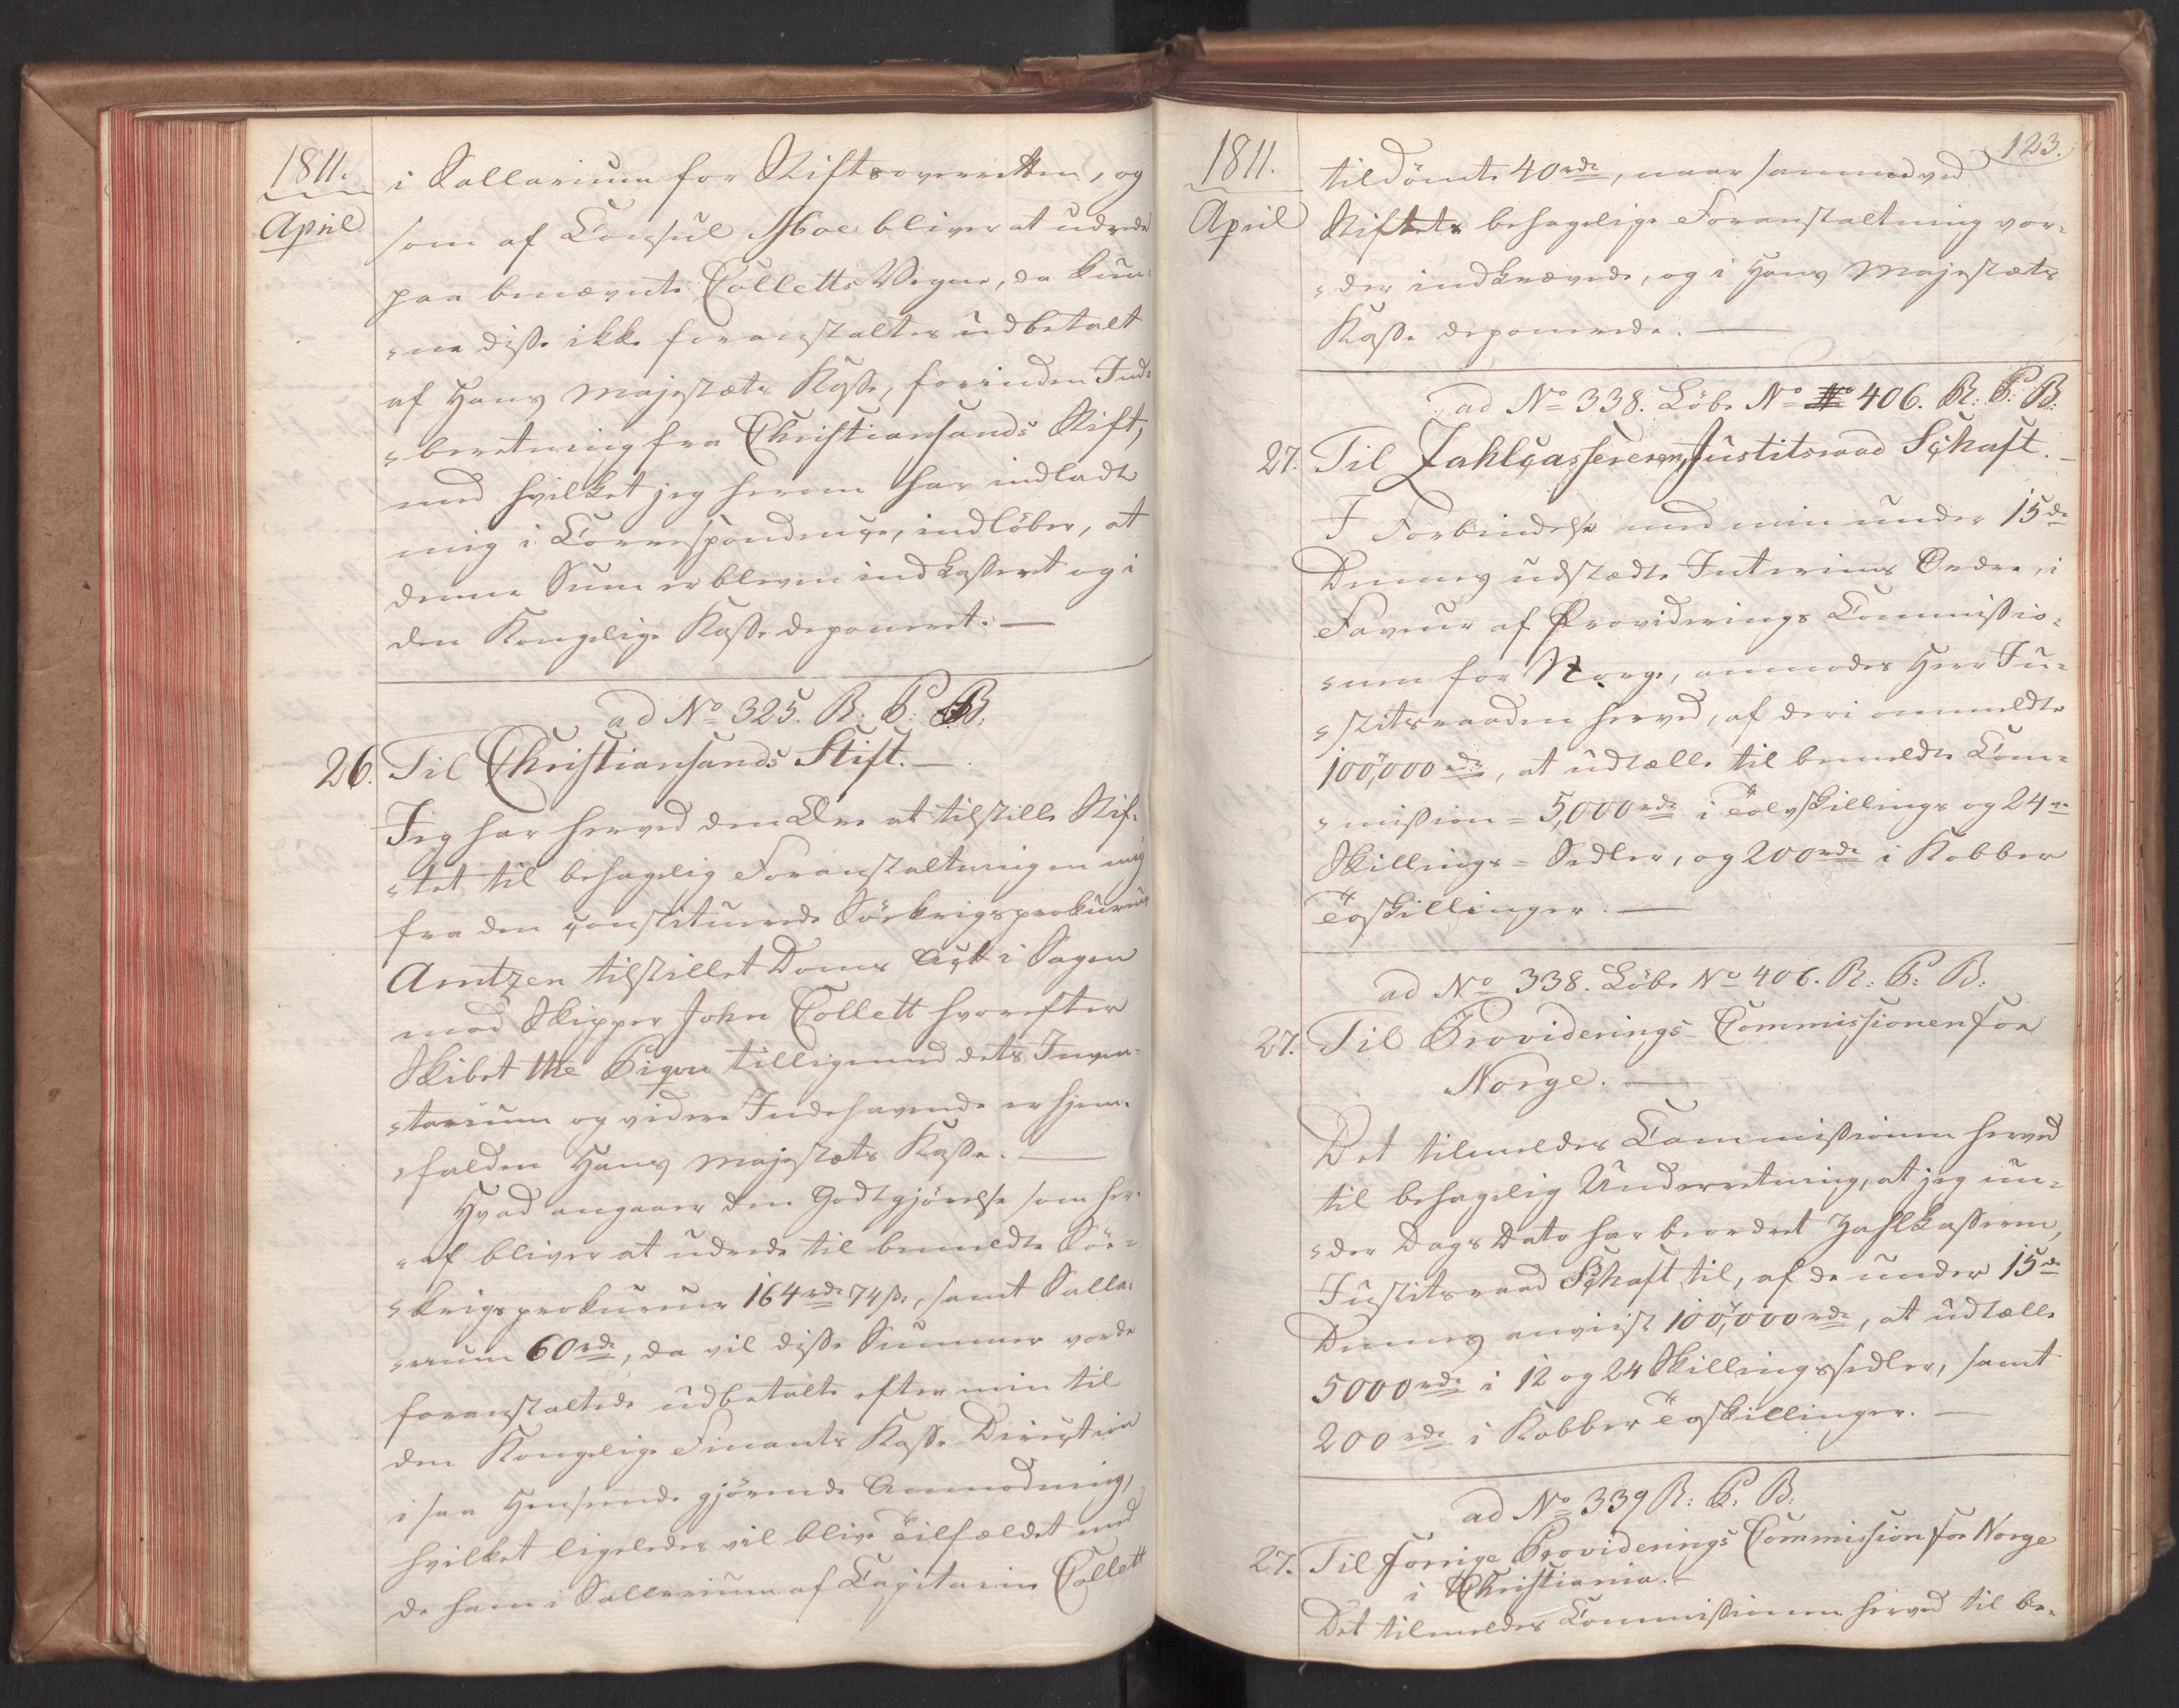 1811.
April
i Sallarium for Stiftsoverretten, og
som af Consul Moe bliver at udrede
paa benævnte Colletts Vegne, da kun-
-ne disse ikke foranstaltes udbetalt
af Hans Majestæts Kasse, forinden Ind-
-beretning fra Christiansands Stift,
med hvilket jeg herom har indladt
mig i Correspondençe, indløber, at
denne Sum er bleven indkasseret og i
den Kongelige Kasse deponeret. —
ad No 325. R: P: B:
26. Til Christiansands Stift. —
Jeg har herved den Ære at tilstille Stif-
-tet til behagelig Foranstaltning en mig
fra den çonstituerede Söekrigsprokureur
Arntzen tilstillet Doms Açt i Sagen
mod Skipper John Collett hvorefter
Skibet the Pigon tilligemed dets Inven-
-tarium og videre Indehavende er hjem-
-falden Hans Majestæts Kasse. —
Hvad angaaer den Godtgjörelse som her-
-af bliver at udrede til bemeldte Söe-
-krigsprokureur 164 rdr 74 s., samt Salla-
-rium 60 rdr, da vil disse Summer vorde
foranstaltede udbetalte efter min til
den Kongelige Finants Kasse Direçtion
i saa Henseende gjörende Anmodning,
hvilket ligeledes vil blive Tilfældet med
de ham i Sallarium af Capitain Collett
123.
1811.
April
tildömte 40 rdr, naar samme ved
Stiftets behagelige Foranstaltning vor-
-der indkrævede, og i Hans Majestæts
Kasse deponerede. —
ad No 338. Löbe No 406. R: P: B:
27. Til Zahlçassereren, Justitsraad Sçhaft. —
I Forbindelse med min under 15de
Dennes udstædte Interims Ordre, i
Faveur af Provideerings Commissio-
-nen for Norge, anmodes Herr Ju-
-stitsraaden herved, af deri ommeldte
100,000 rdr, at udtælle til bemeldte Com-
-mission = 5,000 rdr i Tolvskillings og 24 re
Skillings = Sedler, og 200 rdr i Kobber
Toskillinger. —
ad No 338. Löbe No 406. R: P: B:
27. Til Provideerings- Commissionen for
Norge. —
Det tilmeldes Commissionen herved
til behagelig Underretning, at jeg un-
-der Dags Dato har beordret Zahlkasseren,
Justitsraad Sçhaft til, af de under 15de
Dennes anviist 100,000 rdr, at udtælle
5000 rdr i 12 og 24 Skillingssedler, samt
200 rdr i Kobber Toskillinger. —
ad No 339 R: P: B:
27. Til forrige Provideerings Commission for Norge
i Christiania. —
Det tilmeldes Commissionen herved til be-